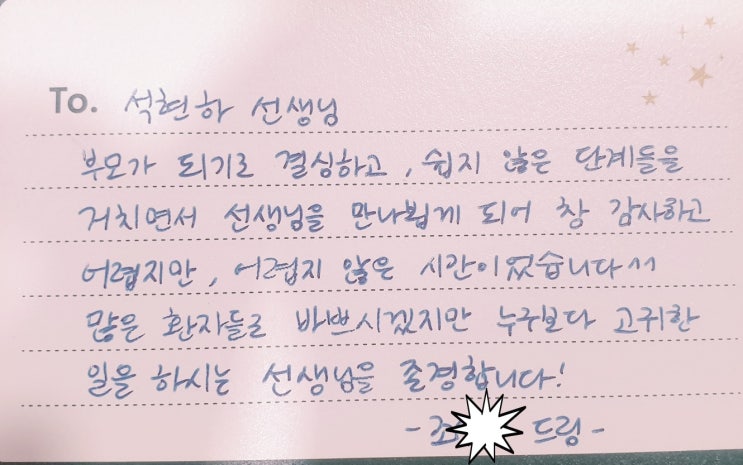 To. 석현하 선생님
부모가 되기로 결심하고, 쉽지 않은 단계들을
거치면서 선생님을 만나뵙게 되어 참 감사하고
어렵지만, 어렵지 않은 시간이었습니다^^
많은 환자들로 바쁘시겠지만 누구보다 고귀한
일을 하시는 선생님을 존경합니다!
- 조 드림 -